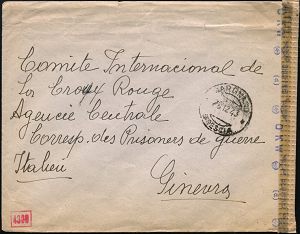 Comite Internacional de
la Croix Rouge
Agencie Centrale
Corresp. des Prisoners de guerre
Italien
Ginevra
BRESCIA
4330